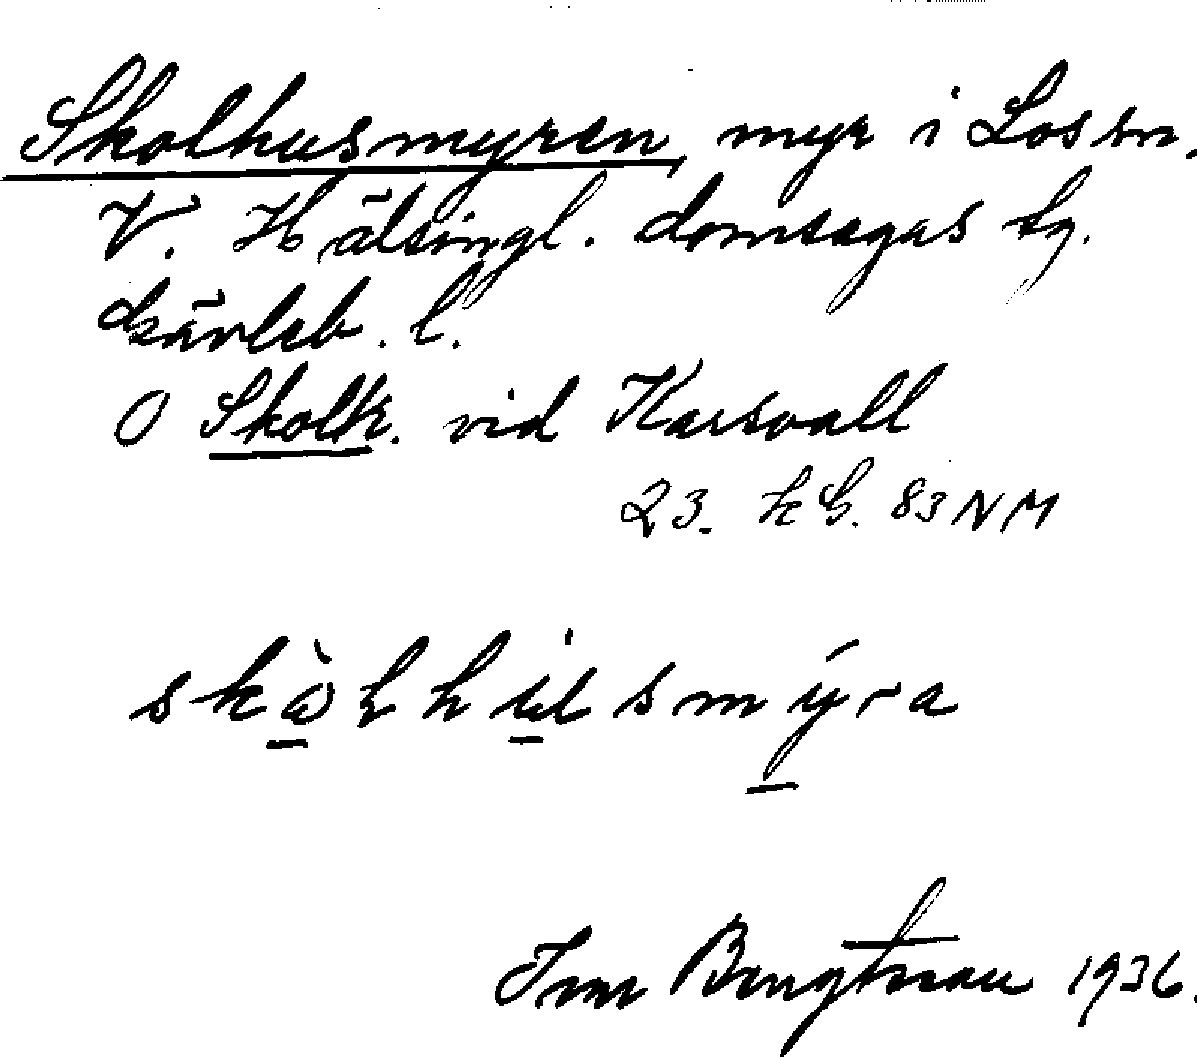 Skolhusmyren, myr i Los sn.
V. Hälsingl. domsagas tg.
Gävleb. l.
O Skolh. vid Karsvall
23. kb. 83 NM
Ivar Bengtsson 1936.